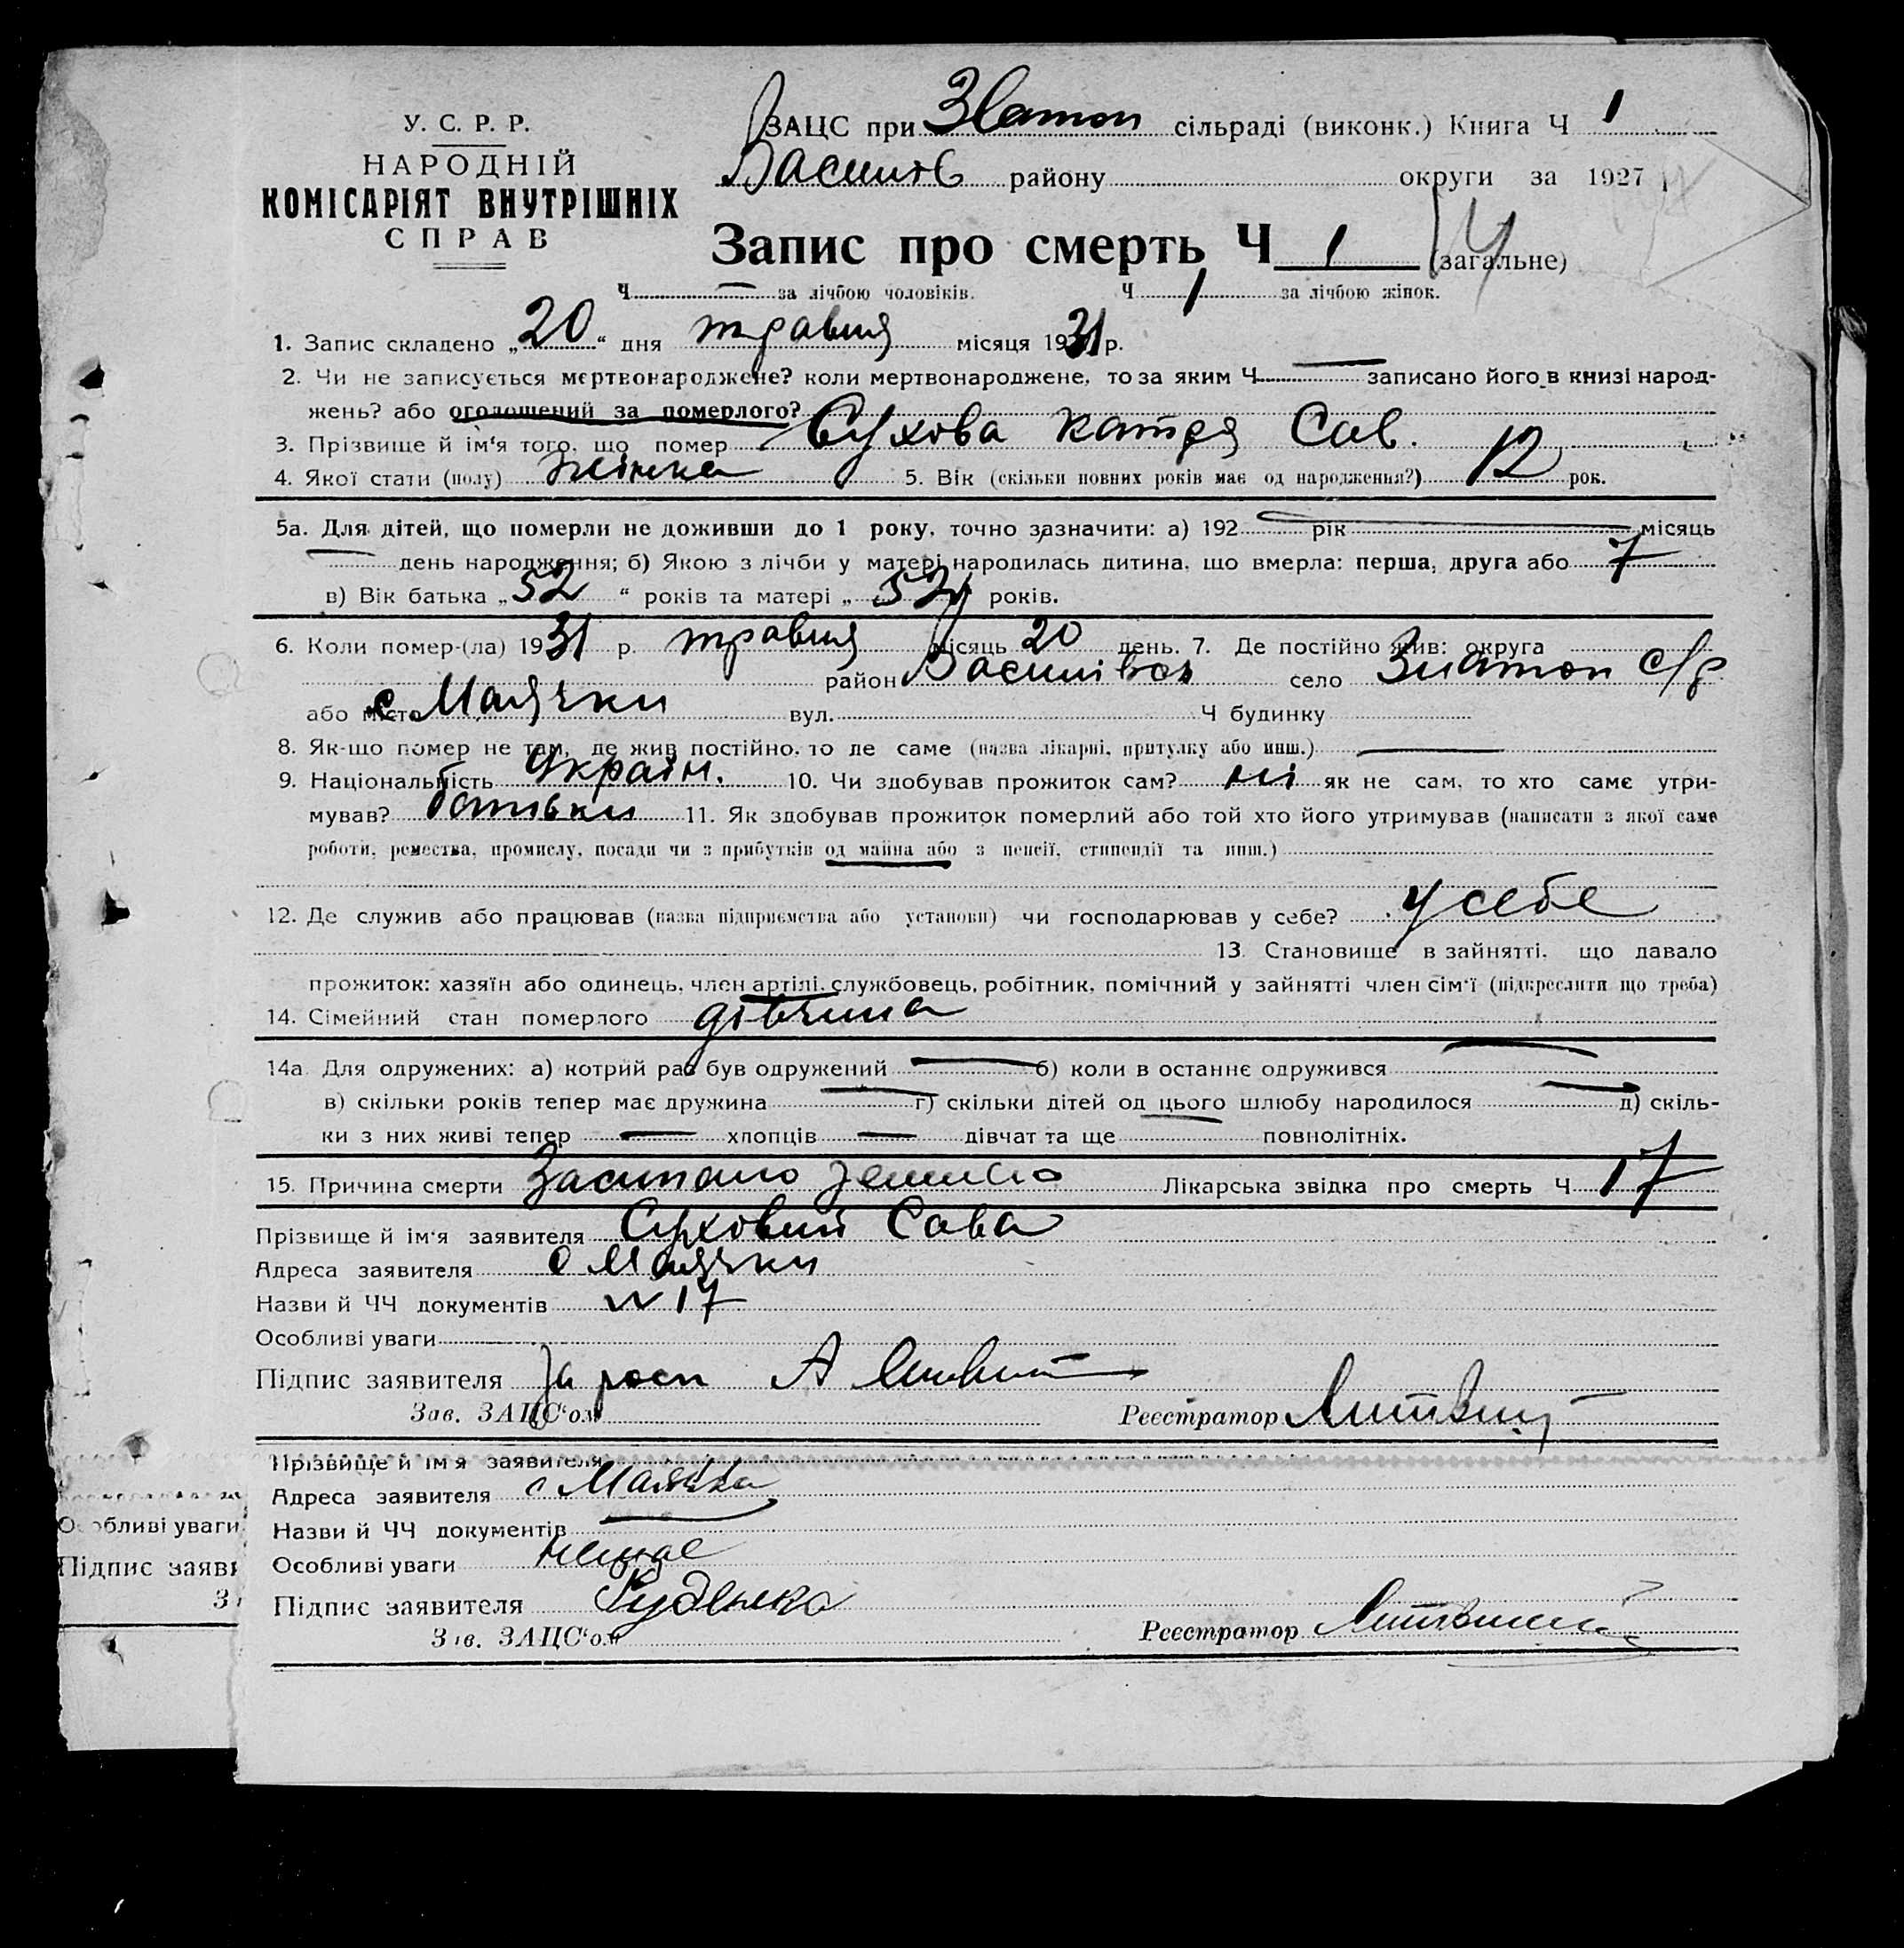 У. С. Р. Р.
НАРОДНІЙ
КОМІСАРІЯТ ВНУТРІШНІХ
СПРАВ
ЗАЦС при Злотоп сільраді (виконк.) Книга Ч 1
Василів району округи за 1927 р
Запис про смерть Ч 1 (загальне)
Ч — за лічбою чоловіків. Ч 1 за лічбою жінок.
1. Запис складено „20“ дня травня місяця 1931 р.
2. Чи не записується мертвонароджене? коли мертвонароджене, то за яким Ч — записано його в книзі народ-
жень? або оголошений за померлого?
3. Прізвище й ім‘я того, що помер Сухова Катря Сав.
4. Якої стати (полу) жінка 5. Вік (скільки повних років має од народження?) 12 рок.
5а. Для дітей, що померли не доживши до 1 року, точно зазначити: а) 192 — рік — місяць
— день народження; б) Якою з лічби у матері народилась дитина, що вмерла: перша, друга або 7
в) Вік батька „52“ років та матері „52 років.
6. Коли помер-(ла) 1931 р. травня місяць 20 день. 7. Де постійно жив: округа
район Василівск село Злотоп с/р
або місто с Маячки вул. Ч будинку
8. Як-що помер не там, де жив постійно, то де саме (назва лікарні, притулку або инш.) —
9. Національність Україн. 10. Чи здобував прожиток сам? ні як не сам, то хто саме утри-
мував? батьки 11. Як здобував прожиток померлий або той хто його утримував (написати з якої саме
роботи, ремества, промислу, посади чи з прибутків од майна або з пенсії, стипендії та инш.)
12. Де служив або працював (назва підприємства або установи) чи господарював у себе? у себе
13. Становище в зайнятті, що давало
прожиток: хазяїн або одинець, член артілі, службовець, робітник, помічний у зайнятті член сім‘ї (підкреслити що треба)
14. Сімейний стан померлого дівчина
14а. Для одружених: а) котрий раз був одружений — б) коли в останнє одружився —
в) скільки років тепер має дружина — г) скільки дітей од цього шлюбу народилося — д) скіль-
ки з них живі тепер — хлопців — дівчат та ще — повнолітніх.
15. Причина смерти Засипано землею Лікарська звідка про смерть Ч 17
Прізвище й ім‘я заявителя Суховий Сава
Адреса заявителя с Маячки
Назви й ЧЧ документів № 17
Особливі уваги
Підпис заявителя За росп А
Зав. ЗАЦС‘ом Реєстратор Литвин
Прізвище й ім‘я заявителя
Адреса заявителя с Маячка
Назви й ЧЧ документів —
Особливі уваги немає
Підпис заявителя Руденко
Зав. ЗАЦС‘ом Реєстратор
Особливі уваги
Підпис заяви
З